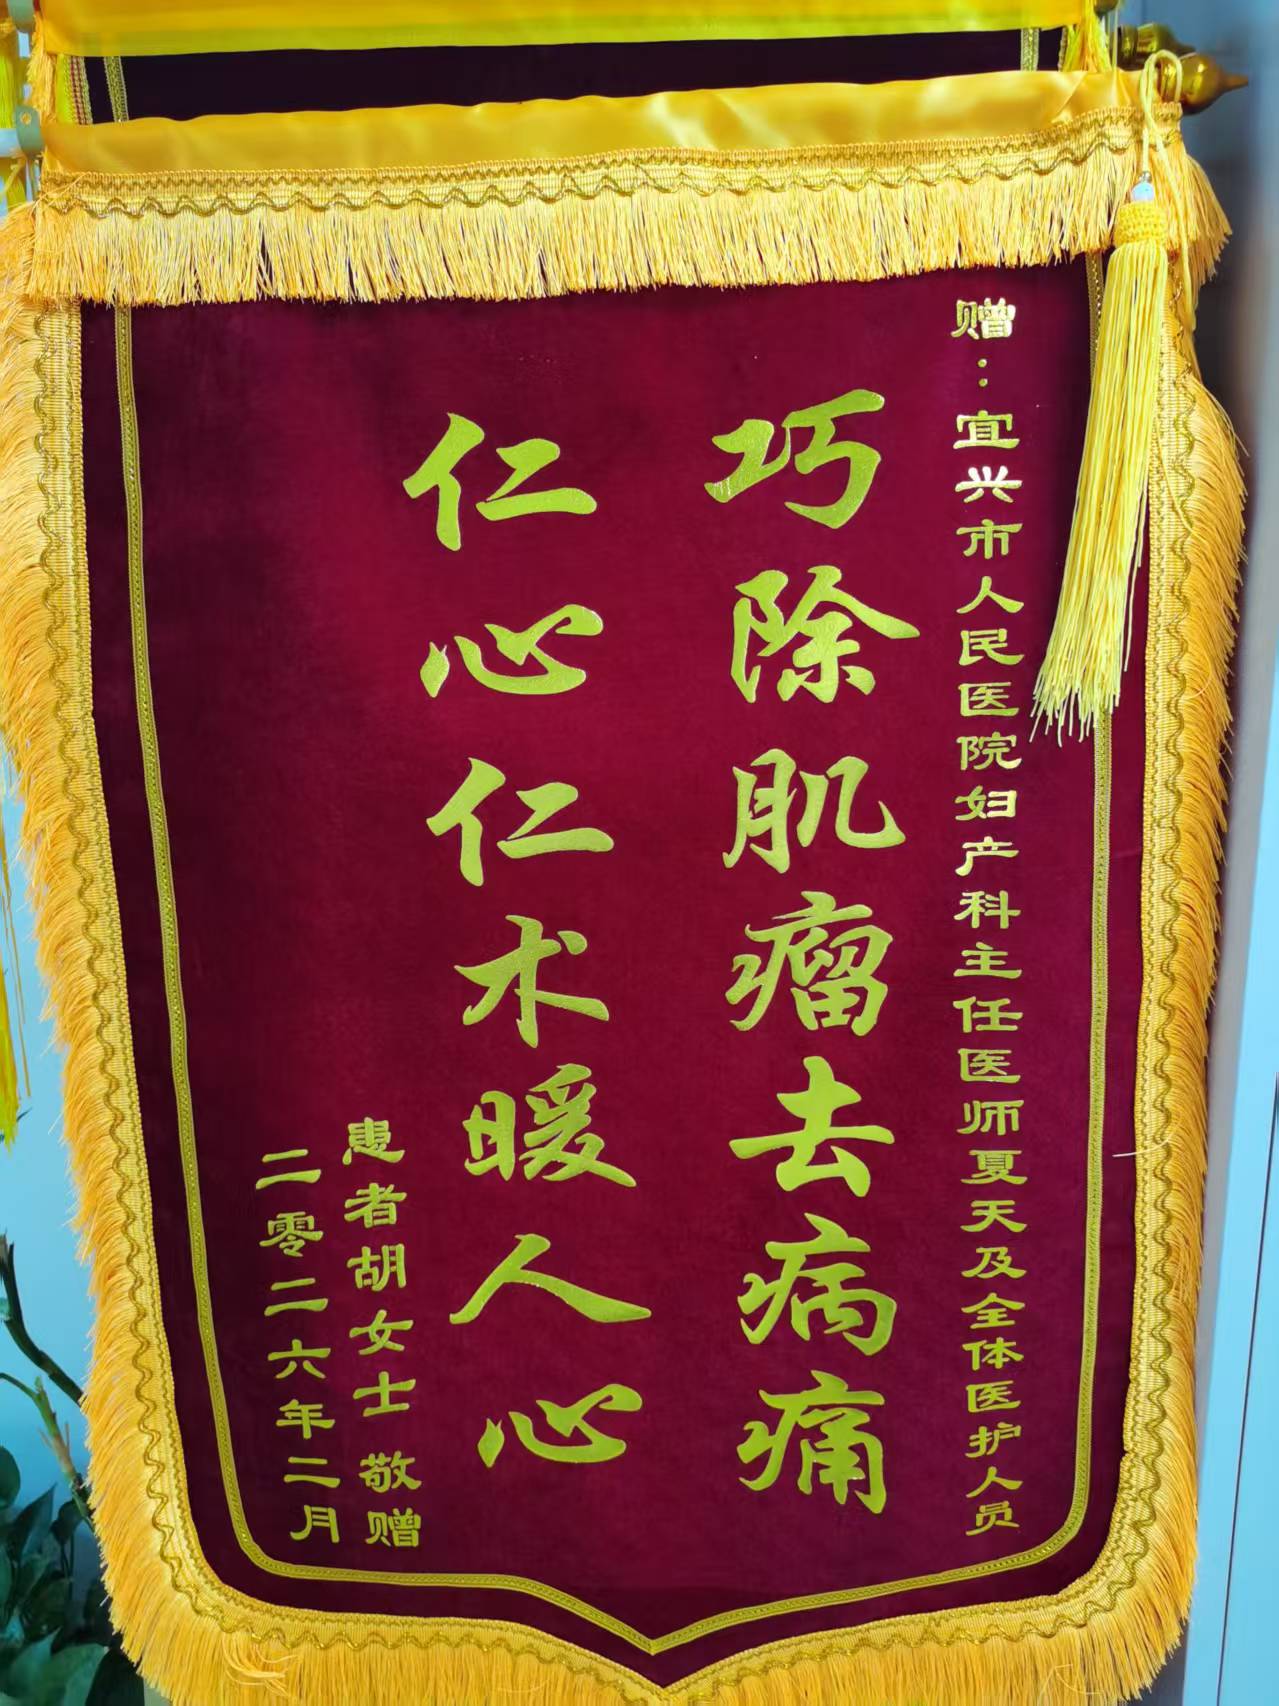 赠：宜兴市人民医院妇产科主任医师夏天及全体医护人员
巧除肌瘤去病痛
仁心仁术暖人心
患者胡女士 敬赠
二零二六年二月